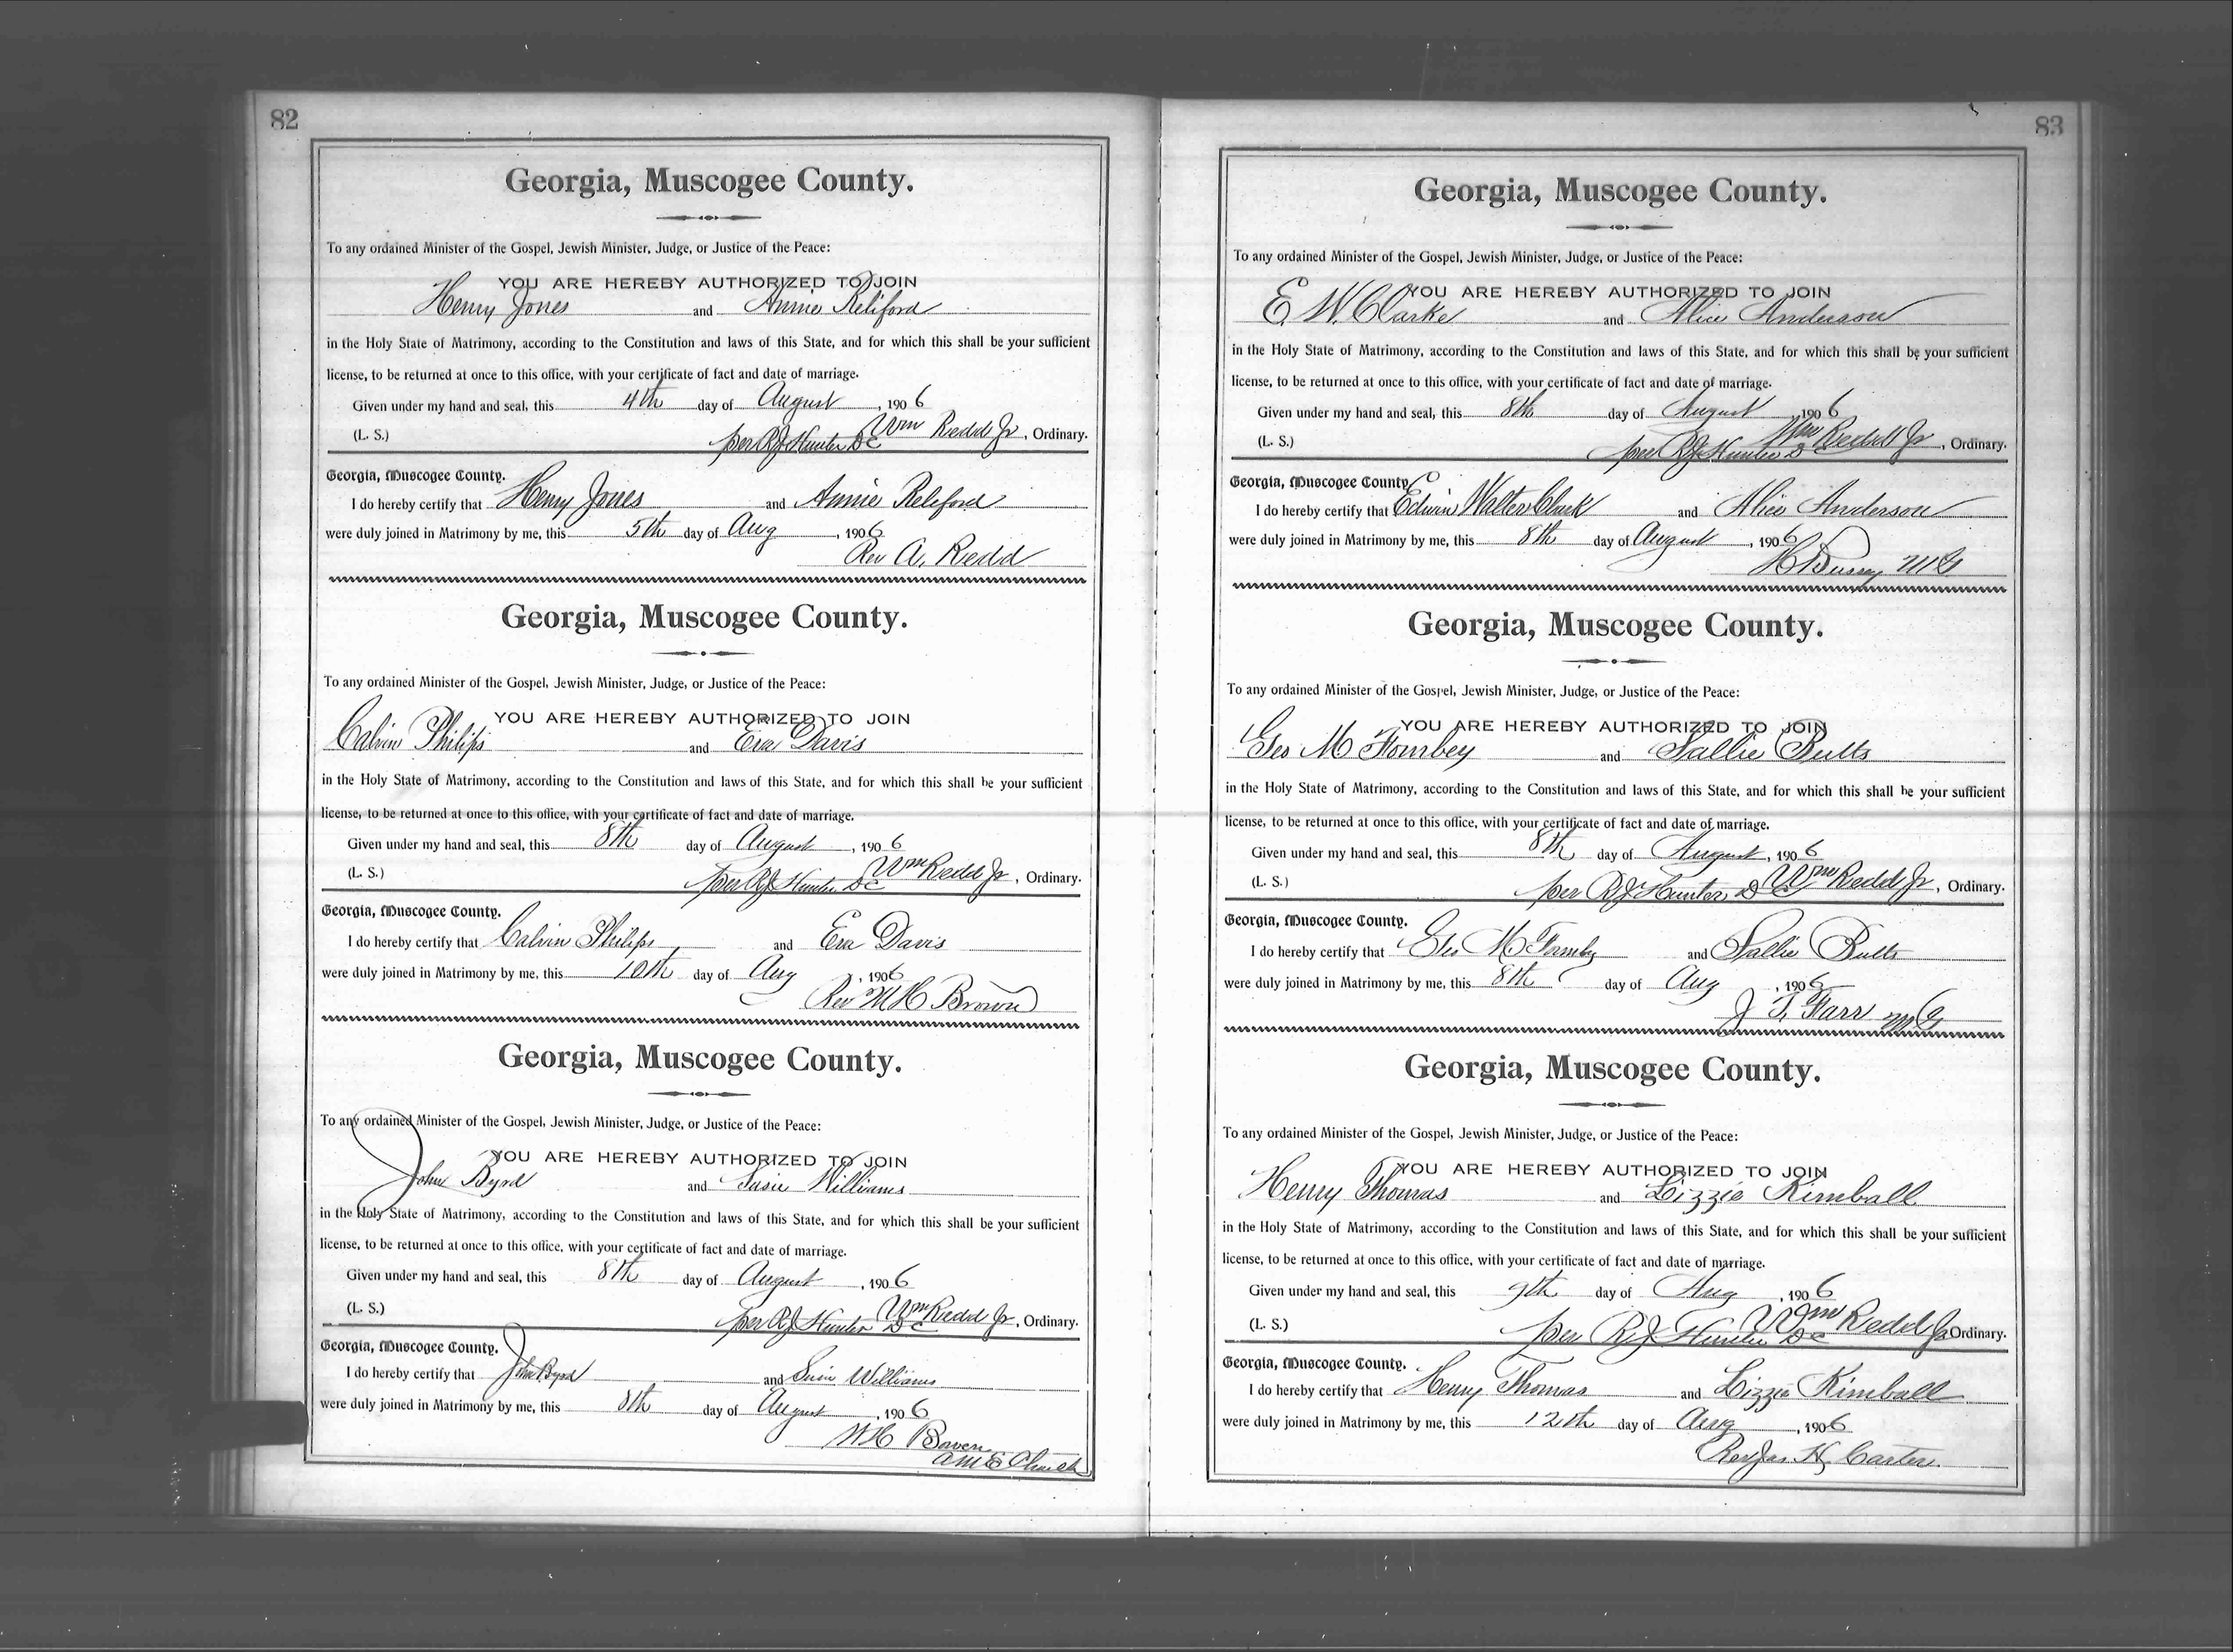 82
Georgia, Muscogee County.
To any ordained Minister of the Gospel, Jewish Minister, Judge, or Justice of the Peace:
YOU ARE HEREBY AUTHORIZED TO JOIN
Henry Jones and Annie Reliford
in the Holy State of Matrimony, according to the Constitution and laws of this State, and for which this shall be your sufficient
license, to be returned at once to this office, with your certificate of fact and date of marriage.
Given under my hand and seal, this 4th day of August, 1906
(L. S.) per R J Hunter DC Wm Redd Jr, Ordinary.
Georgia, Muscogee County.
I do hereby certify that Henry Jones and Annie Releford
were duly joined in Matrimony by me, this 5th day of Aug, 1906
Rev A. Redd
Georgia, Muscogee County.
To any ordained Minister of the Gospel, Jewish Minister, Judge, or Justice of the Peace:
YOU ARE HEREBY AUTHORIZED TO JOIN
Calvin Philips and Era Davis
in the Holy State of Matrimony, according to the Constitution and laws of this State, and for which this shall be your sufficient
license, to be returned at once to this office, with your certificate of fact and date of marriage.
Given under my hand and seal, this 8th day of August, 1906
(L. S.) per R J Hunter DC Wm Redd Jr, Ordinary.
Georgia, Muscogee County.
I do hereby certify that Calvin Philips and Era Davis
were duly joined in Matrimony by me, this 10th day of Aug, 1906
Rev M H Brown
Georgia, Muscogee County.
To any ordained Minister of the Gospel, Jewish Minister, Judge, or Justice of the Peace:
YOU ARE HEREBY AUTHORIZED TO JOIN
John Byrd and Susie Williams
in the Holy State of Matrimony, according to the Constitution and laws of this State, and for which this shall be your sufficient
license, to be returned at once to this office, with your certificate of fact and date of marriage.
Given under my hand and seal, this 8th day of August, 1906
(L. S.) per R J Hunter DC Wm Redd Jr, Ordinary.
Georgia, Muscogee County.
I do hereby certify that John Byrd and Susie Williams
were duly joined in Matrimony by me, this 8th day of August, 1906
W H Bowen
AME Church
83
Georgia, Muscogee County.
To any ordained Minister of the Gospel, Jewish Minister, Judge, or Justice of the Peace:
YOU ARE HEREBY AUTHORIZED TO JOIN
E. W. Clarke and Alice Anderson
in the Holy State of Matrimony, according to the Constitution and laws of this State, and for which this shall be your sufficient
license, to be returned at once to this office, with your certificate of fact and date of marriage.
Given under my hand and seal, this 8th day of August, 1906
(L. S.) per R J Hunter DC Wm Redd Jr, Ordinary.
Georgia, Muscogee County.
I do hereby certify that Edwin Walter Clark and Alice Anderson
were duly joined in Matrimony by me, this 8th day of August, 1906
H Bussey MG
Georgia, Muscogee County.
To any ordained Minister of the Gospel, Jewish Minister, Judge, or Justice of the Peace:
YOU ARE HEREBY AUTHORIZED TO JOIN
Geo M Fombey and Sallie Butts
in the Holy State of Matrimony, according to the Constitution and laws of this State, and for which this shall be your sufficient
license, to be returned at once to this office, with your certificate of fact and date of marriage.
Given under my hand and seal, this 8th day of August, 1906
(L. S.) per R J Hunter DC Wm Redd Jr, Ordinary.
Georgia, Muscogee County.
I do hereby certify that Geo M Fomby and Sallie Butts
were duly joined in Matrimony by me, this 8th day of Aug, 1906
J. T. Farr MG
Georgia, Muscogee County.
To any ordained Minister of the Gospel, Jewish Minister, Judge, or Justice of the Peace:
YOU ARE HEREBY AUTHORIZED TO JOIN
Henry Thomas and Lizzie Kimball
in the Holy State of Matrimony, according to the Constitution and laws of this State, and for which this shall be your sufficient
license, to be returned at once to this office, with your certificate of fact and date of marriage.
Given under my hand and seal, this 9th day of Aug, 1906
(L. S.) per R J Hunter DC Wm Redd Jr Ordinary.
Georgia, Muscogee County.
I do hereby certify that Henry Thomas and Lizzie Kimball
were duly joined in Matrimony by me, this 12th day of Aug, 1906
Rev Jas H Carter.